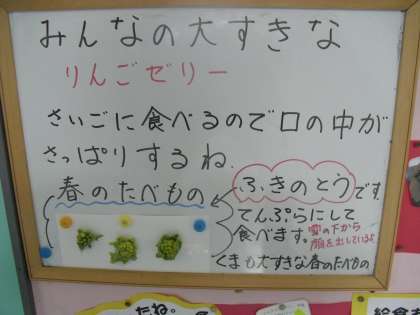 みんなの大すきな
りんごゼリー
さいごに食べるので口の中が
さっぱりするね.
春のたべもの
ふきのとうです
てんぷらにして
食べます。
雪の下から
顔を出しているよ
くまも大すきな春のたべもの
たね。
給食